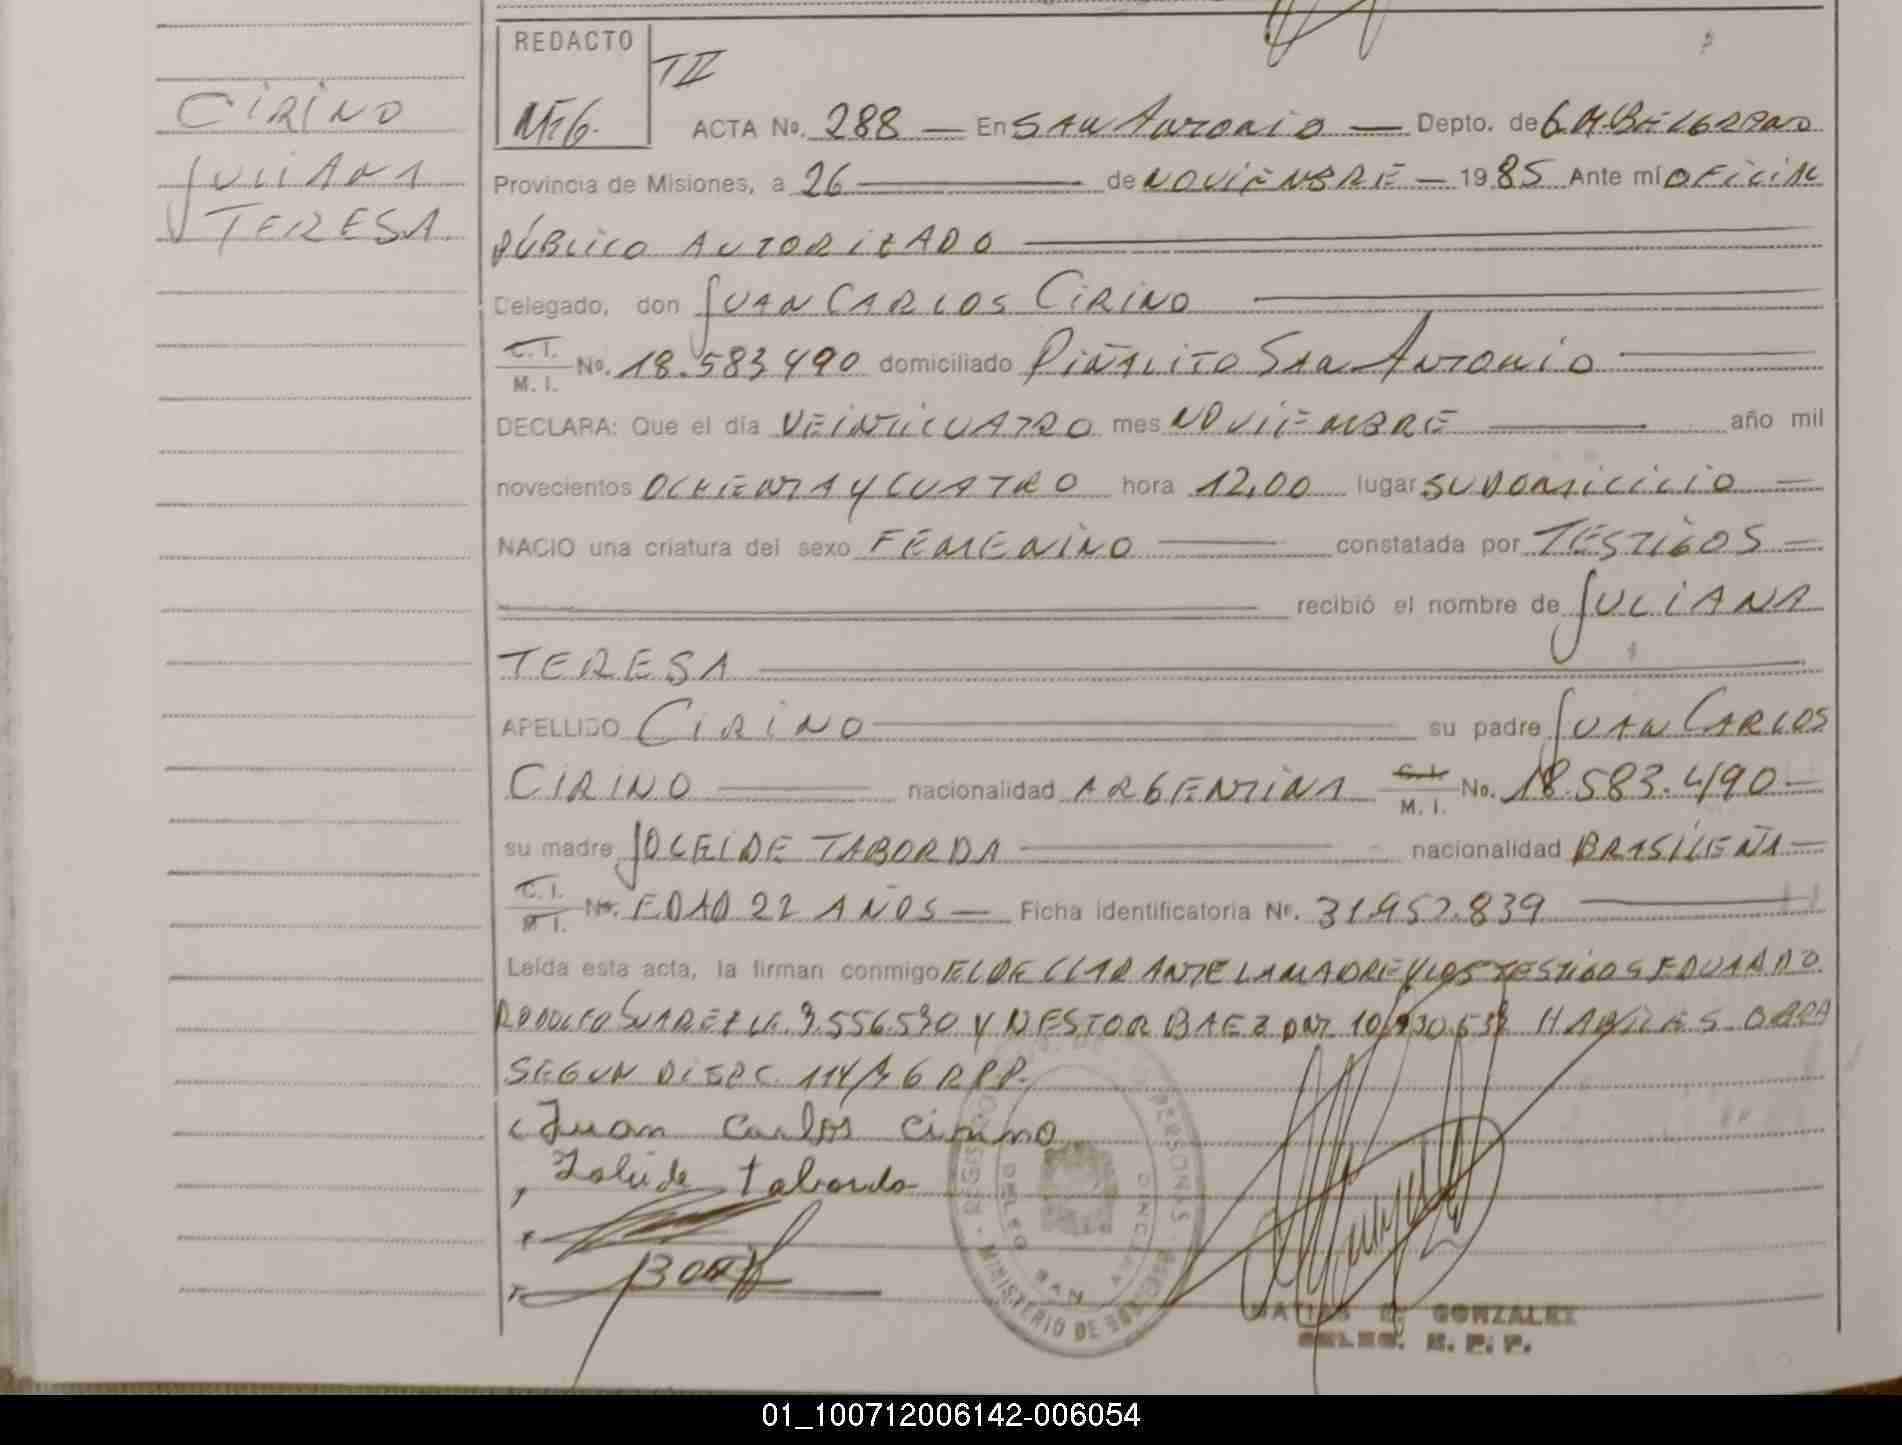 REDACTO
TII
CIRINO
JULIANA
TERESA.
ACTA No. 288 — En SAN ANTONIO — Depto. de G.M.BELGRANO
Provincia de Misiones, a 26 — de NOVIEMBRE — 1985 Ante mí OFICIAL
PÚBLICO AUTORIZADO
Delegado, don JUAN CARLOS CIRINO
C. I.
M. I. No. 18.583.490 domiciliado PIÑALITO SAN ANTONIO
DECLARA: Que el día VEINTICUATRO mes NOVIEMBRE — año mil
novecientos OCHENTA Y CUATRO hora 12,00 lugar SU DOMICILIO —
NACIO una criatura del sexo FEMENINO — constatada por TESTIGOS —
recibió el nombre de JULIANA
TERESA
APELLIDO CIRINO su padre JUAN CARLOS
CIRINO — nacionalidad ARGENTINA C. I. M. I. No. 18.583.490 —
su madre JOCEIDE TABORDA — nacionalidad BRASILEÑA —
C. I.
M. I. No. EDAD 22 AÑOS — Ficha identificatoria No. 31.957.839
Leída esta acta, la firman conmigo EL DECLARANTE LA MADRE Y LOS TESTIGOS EDUARDO
RODOLFO SUAREZ LE. 3.556.530 Y NESTOR BAEZ DNI HABILES OBRA
SEGUN R.P.P.
Juan Carlos Cirino
taborda
REGISTRO PERSONAS
MINISTERIO DE GOBIERNO
DELEG
SAN
GONZALEZ
DELEG. R. P. P.
01_100712006142-006054